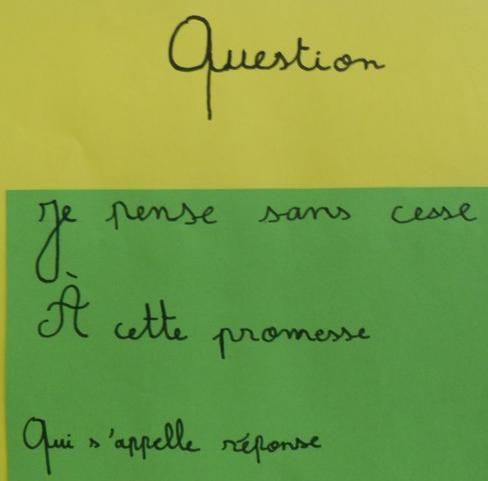 Question
Je pense sans cesse
À cette promesse
Qui s'appelle réponse